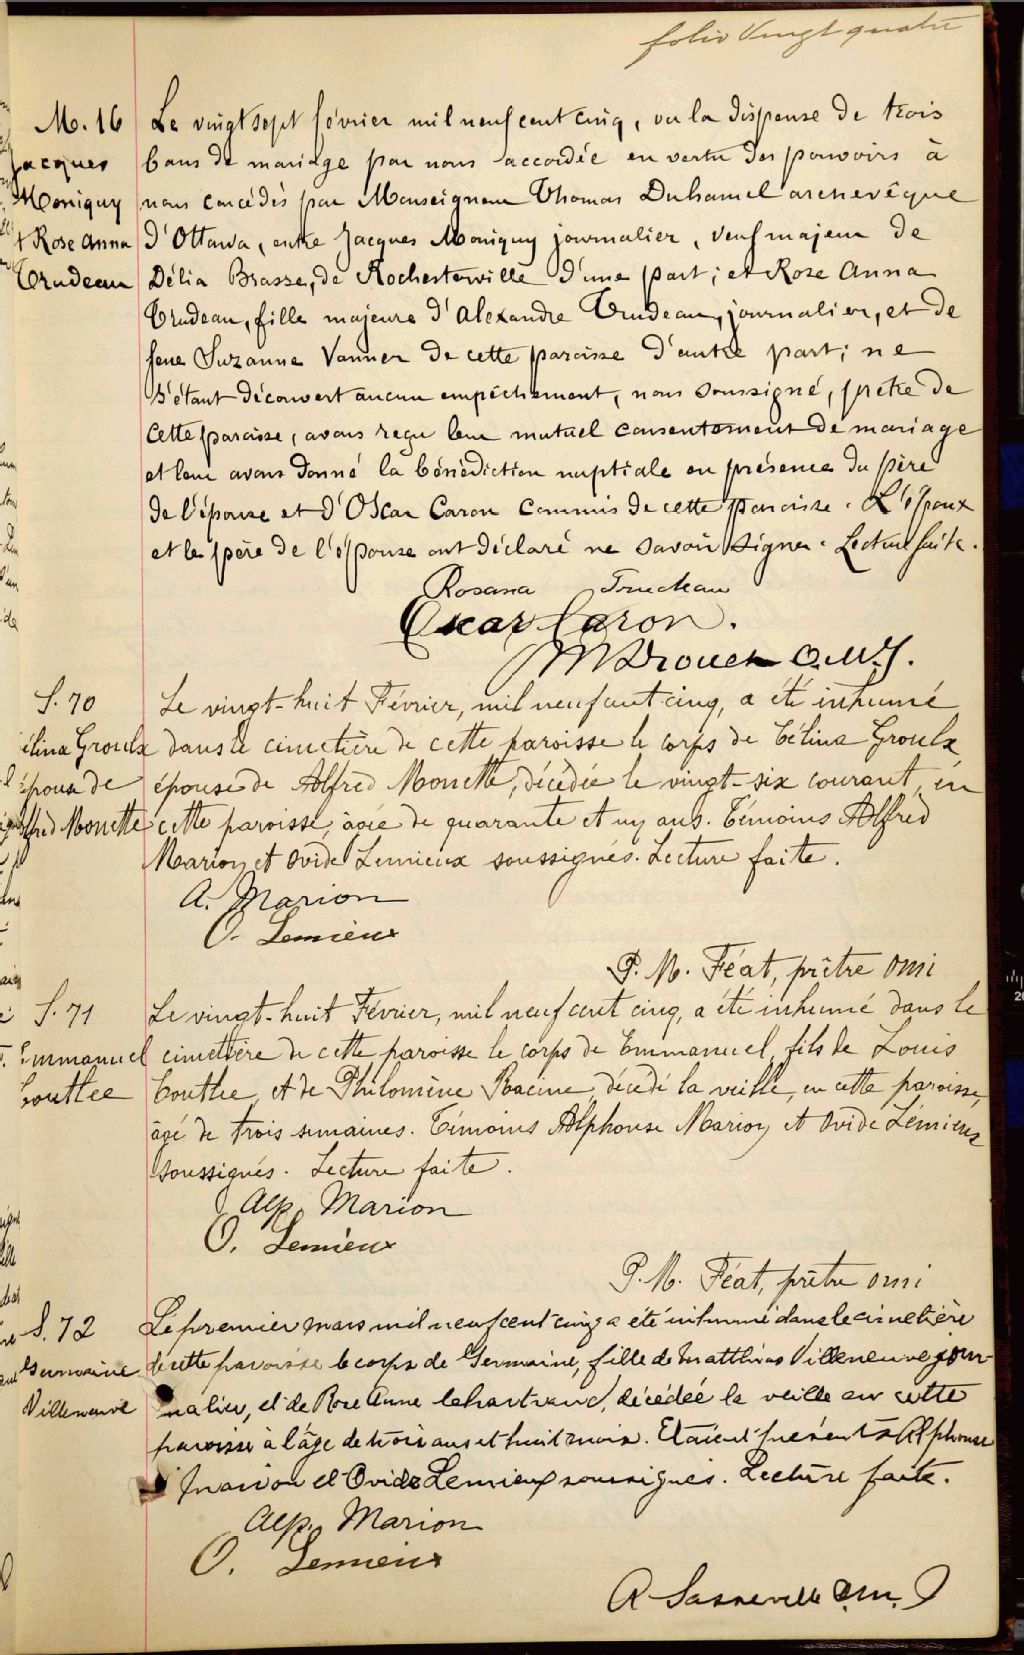 folio Vingt quatre
M. 16
Jacques
Moniguy
+ Rose Anna
Trudeau
Le vingt sept février mil neuf cent cinq, vu la dispense de trois
bans de mariage par nous accordée en vertu des pouvoirs à
nous concédés par Monseigneur Thomas Duhamel archevêque
d'Ottawa, entre Jacques Moniguy journalier, veuf majeur de
Délia Brasse, de Rochesterville d'une part; et Rose Anna
Trudeau, fille majeure d'Alexandre Trudeau, journalier, et de
feue Suzanne Vanner de cette paroisse d'autre part; ne
s'étant découvert aucun empêchement, nous soussigné, prêtre de
cette paroisse, avons reçu leur mutuel consentement de mariage
et leur avons donné la bénédiction nuptiale en présence du père
de l'épouse et d'Oscar Caron commis de cette paroisse. L'époux
et le père de l'épouse ont déclaré ne savoir signer. Lecture faite.
Rosana Trudeau
Oscar Caron.
M Drouet O.M.I.
S. 70
élina Groulx
épouse de
Alfred Monette
Le vingt-huit Février, mil neuf cent cinq, a été inhumé
dans le cimetière de cette paroisse le corps de Célina Groulx
épouse de Alfred Monette, décédée le vingt-six courant, en
cette paroisse, âgée de quarante et un ans. Témoins Alfred
Marion et Ovide Lemieux soussignés. Lecture faite.
A. Marion
O. Lemieux
P. M. Féat, prêtre omi
S. 71
Emmanuel
Couttee
Le vingt-huit Février, mil neuf cent cinq, a été inhumé dans le
cimetière de cette paroisse le corps de Emmanuel, fils de Louis
Couttee, et de Philomène Racine, décédé la veille, en cette paroisse,
âgé de trois semaines. Témoins Alphonse Marion et Ovide Lémieux
soussignés. Lecture faite.
Alp. Marion
O. Lemieux
P. M. Féat, prêtre omi
S. 72
Germaine
Villeneuve
Le premier mars mil neuf cent cinq a été inhumé dans le cimetière
de cette paroisse le corps de Germaine, fille de Matthias Villeneuve jour-
nalier, et de Rose Anne lehartrand, décédée la veille en cette
paroisse à l'âge de trois ans et huit mois. Etaient présents Alphonse
Marion et Ovide Lemieux soussignés. Lecture faite.
Alp. Marion
O. Lemieux
A Lasneville O.M.I